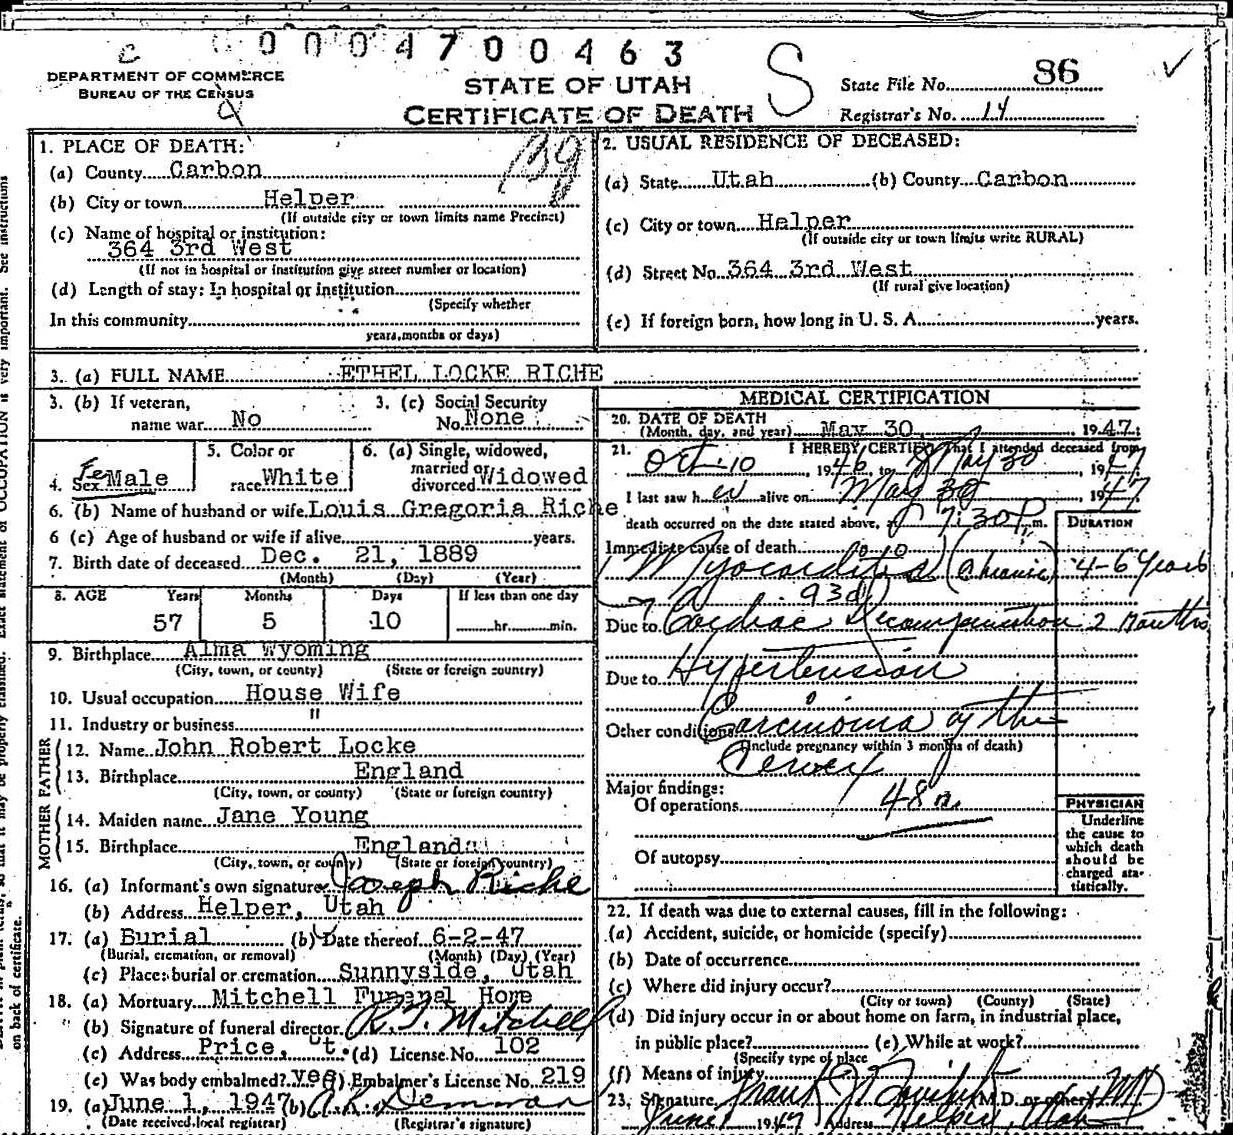 0 0 0 4 7 0 0 4 6 3
DEPARTMENT OF COMMERCE
BUREAU OF THE CENSUS
STATE OF UTAH
CERTIFICATE OF DEATH
S
State File No. 86
Registrar's No. 14
1. PLACE OF DEATH:
(a) County Carbon
(b) City or town Helper
(If outside city or town limits name Precinct)
(c) Name of hospital or institution:
364 3rd West
(If not in hospital or institution give street number or location)
(d) Length of stay: In hospital or institution
(Specify whether
In this community
years, months or days)
2. USUAL RESIDENCE OF DECEASED:
(a) State Utah (b) County Carbon
(c) City or town Helper
(If outside city or town limits write RURAL)
(d) Street No. 364 3rd West
(If rural give location)
(e) If foreign born, how long in U. S. A. years.
3. (a) FULL NAME ETHEL LOCKE RICHE
3. (b) If veteran,
name war No
3. (c) Social Security
No. None
4. Sex FeMale
5. Color or
race White
6. (a) Single, widowed,
married or
divorced Widowed
6. (b) Name of husband or wife Louis Gregoria Riche
6 (c) Age of husband or wife if alive years.
7. Birth date of deceased Dec. 21, 1889
(Month) (Day) (Year)
8. AGE Years Months Days If less than one day
57 5 10 hr. min.
9. Birthplace Alma Wyoming
(City, town, or county) (State or foreign country)
10. Usual occupation House Wife
11. Industry or business "
FATHER
12. Name John Robert Locke
13. Birthplace England
(City, town, or county) (State or foreign country)
MOTHER
14. Maiden name Jane Young
15. Birthplace England
(City, town, or county) (State or foreign country)
16. (a) Informant's own signature Joseph Riche
(b) Address Helper, Utah
17. (a) Burial (b) Date thereof 6-2-47
(Burial, cremation, or removal) (Month) (Day) (Year)
(c) Place: burial or cremation Sunnyside, Utah
18. (a) Mortuary Mitchell Funeral Home
(b) Signature of funeral director Mitchell
(c) Address Price, Ut. (d) License No. 102
(e) Was body embalmed? yes (f) Embalmer's License No. 219
19. (a) June 1, 1947 (b)
(Date received local registrar) (Registrar's signature)
MEDICAL CERTIFICATION
20. DATE OF DEATH
(Month, day, and year) May 30, 1947
21. I HEREBY CERTIFY That I attended deceased from
Oct 10, 1946, to May 30, 1947
I last saw her alive on May 30, 1947
death occurred on the date stated above, at 7:30 P. m.
DURATION
Immediate cause of death
Myocarditis (Chronic) 4-6 Years
93d
Due to Cardiac Decompensation 2 Months
Due to Hypertension
Other conditions Carcinoma of the
(Include pregnancy within 3 months of death)
Cervex
Major findings:
Of operations 48a
Of autopsy
PHYSICIAN
Underline
the cause to
which death
should be
charged sta-
tistically.
22. If death was due to external causes, fill in the following:
(a) Accident, suicide, or homicide (specify)
(b) Date of occurrence
(c) Where did injury occur?
(City or town) (County) (State)
(d) Did injury occur in or about home on farm, in industrial place,
in public place? (e) While at work?
(Specify type of place
(f) Means of injury
23. Signature Frank (M.D. or other) MD
June 1 1947 Address Helper, Utah